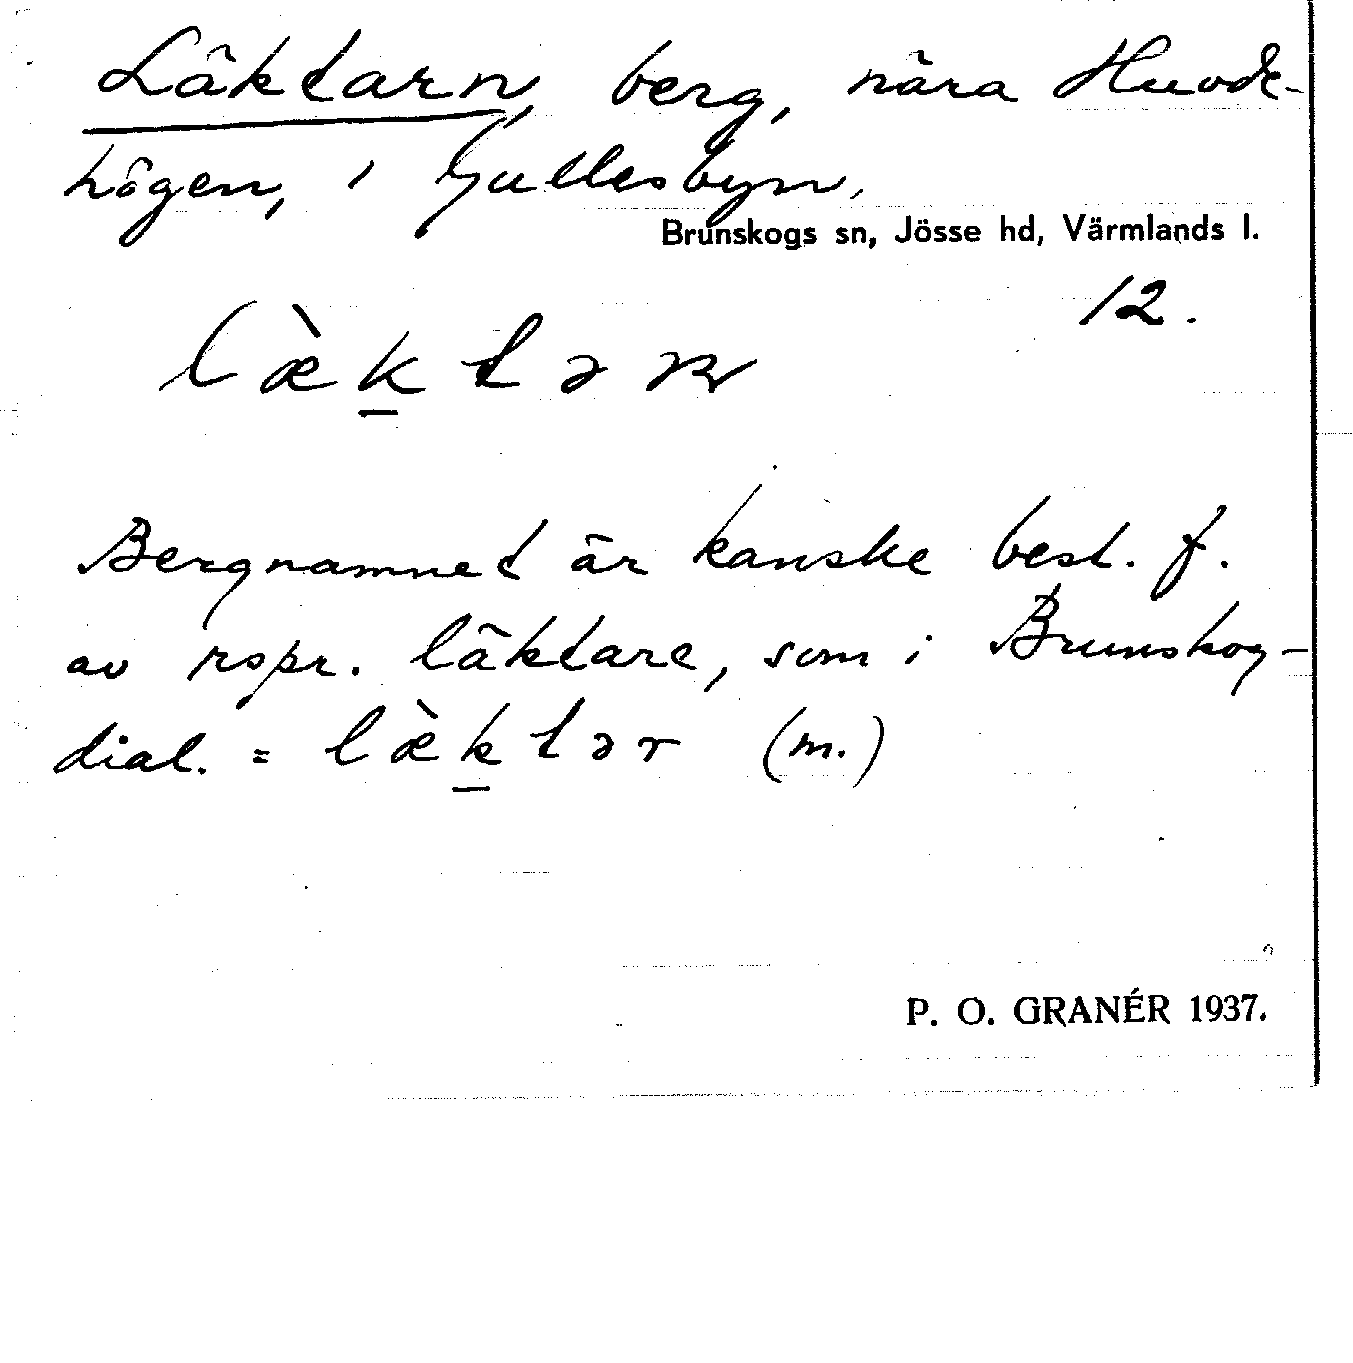 Läktarn, berg, nära Huvde-
högen, i Gullesbyn.
Brunskogs sn, Jösse hd, Värmlands l.
12.
Bergnamnet är kanske best. f.
av rspr. läktare, som i Brunskog-
dial. = læ̀k̲tər (m.)
P. O. GRANÉR 1937.